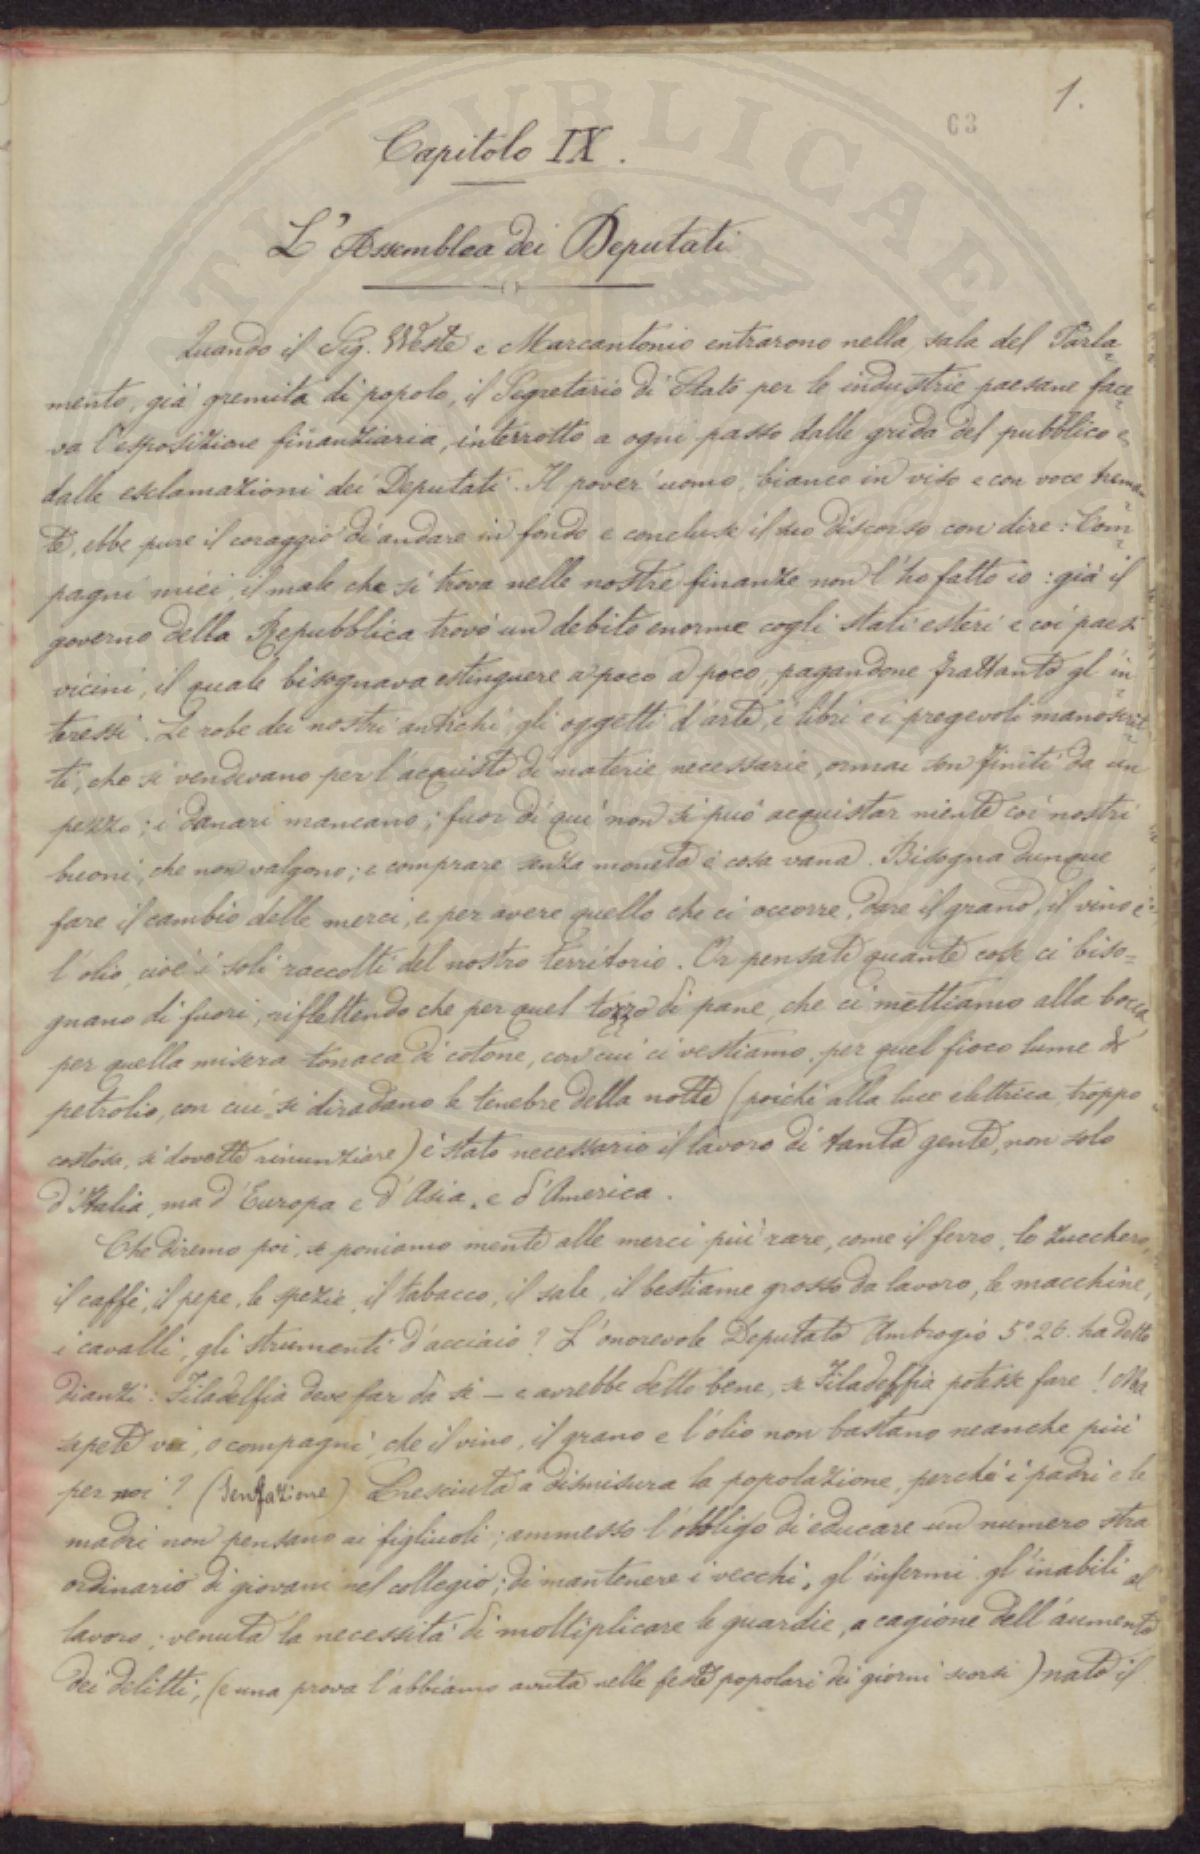 1.
63
Capitolo IX.
L'Assemblea dei Deputati
Quando il Sig. Weste e Marcantonio entrarono nella sala del Parla=
mento, già gremita di popolo, il Segretario di Stato per le industrie paesane face=
va l'esposizione finanziaria, interrotto a ogni passo dalle grida del pubblico e
dalle esclamazioni dei Deputati. Il pover'uomo, bianco in viso e con voce treman=
te, ebbe pure il coraggio di andare in fondo e concluse il suo discorso con dire: Com=
pagni miei, il male che si trova nelle nostre finanze non l'ho fatto io: già il
governo della Repubblica trovò un debito enorme cogli stati esteri e coi paesi
vicini, il quale bisognava estinguere a poco a poco, pagandone frattanto gl'in=
teressi. Le robe dei nostri antichi, gli oggetti d'arte, i libri e i pregevoli manoscrit=
ti, che si vendevano per l'acquisto di materie necessarie, ormai son finiti da un
pezzo; i danari mancano; fuor di qui non si può acquistar niente coi nostri
buoni, che non valgono; e comprare senza moneta è cosa vana. Bisogna dunque
fare il cambio delle merci, e per avere quello che ci occorre, dare il grano, il vino e
l'olio, cioè i soli raccolti del nostro territorio. Or pensate quante cose ci biso=
gnano di fuori, riflettendo che per quel tozzo di pane, che ci mettiamo alla bocca,
per quella misera tonaca di cotone, con cui ci vestiamo, per quel fioco lume di
petrolio, con cui si diradano le tenebre della notte (poichè alla luce elettrica, troppo
costosa, si dovette rinunziare) è stato necessario il lavoro di tanta gente, non solo
d'Italia, ma d'Europa e d'Asia, e d'America.
Che diremo poi, se poniamo mente alle merci più rare, come il ferro, lo zucchero,
il caffè, il pepe, le spezie, il tabacco, il sale, il bestiame grosso da lavoro, le macchine,
i cavalli, gli strumenti d'acciaio? L'onorevole Deputato Ambrogio 5º 26. ha detto
dianzi: Filadelfia deve far da sè — e avrebbe detto bene, se Filadelfia potesse fare! Ma
sapete voi, o compagni, che il vino, il grano e l'olio non bastano neanche più
per noi? (Sensazione) Cresciuta a dismisura la popolazione, perchè i padri e le
madri non pensano ai figliuoli; ammesso l'obbligo di educare un numero stra
ordinario di giovani nel collegio; di mantenere i vecchi, gl'infermi gl'inabili al
lavoro; venuta la necessità di moltiplicare le guardie, a cagione dell'aumento
dei delitti, (e una prova l'abbiamo avuta nelle feste popolari dei giorni scorsi) nato il